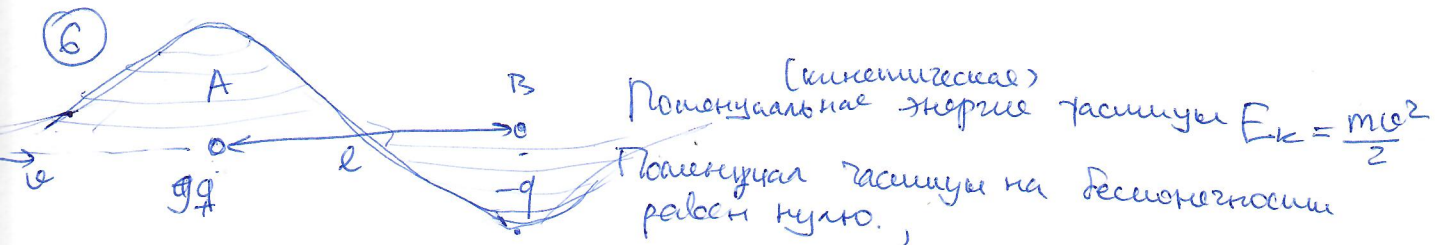 6
A
B
(кинетическая)
Потенциальная энергия частицы E_k = mv²/2
v
l
9q
A
-q
Потенциал частицы на бесконечности
равен нулю.,